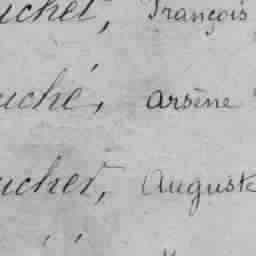 uchet, François
uché, Arsène
ucher, August